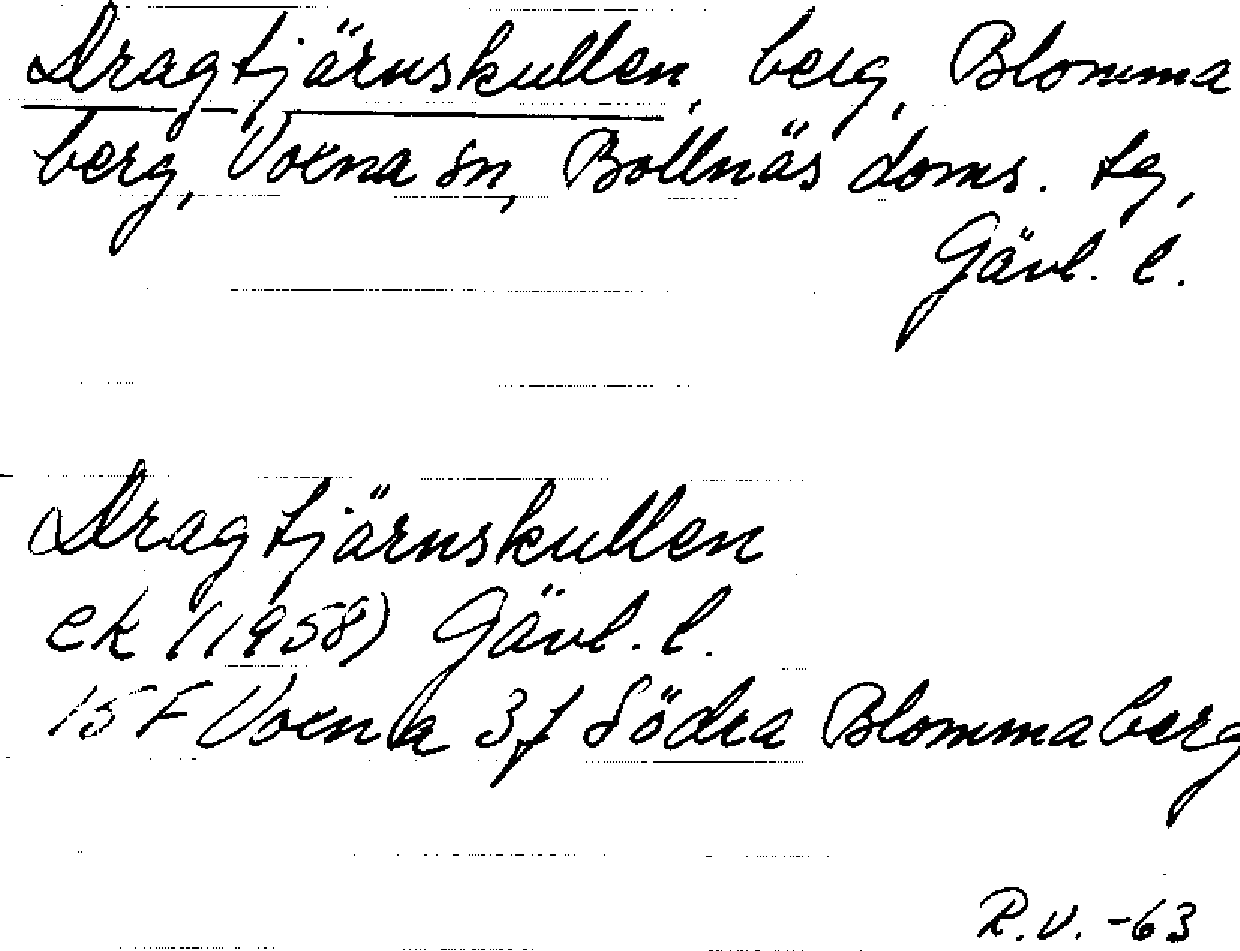 Dragtjärnskullen, berg, Blomma
berg, Voxna sn, Bollnäs doms. tg,
Gävl. l.
Dragtjärnskullen
ek (1958) Gävl. l.
15 F Voxna 3f Södra Blommaberg
R.V. -63